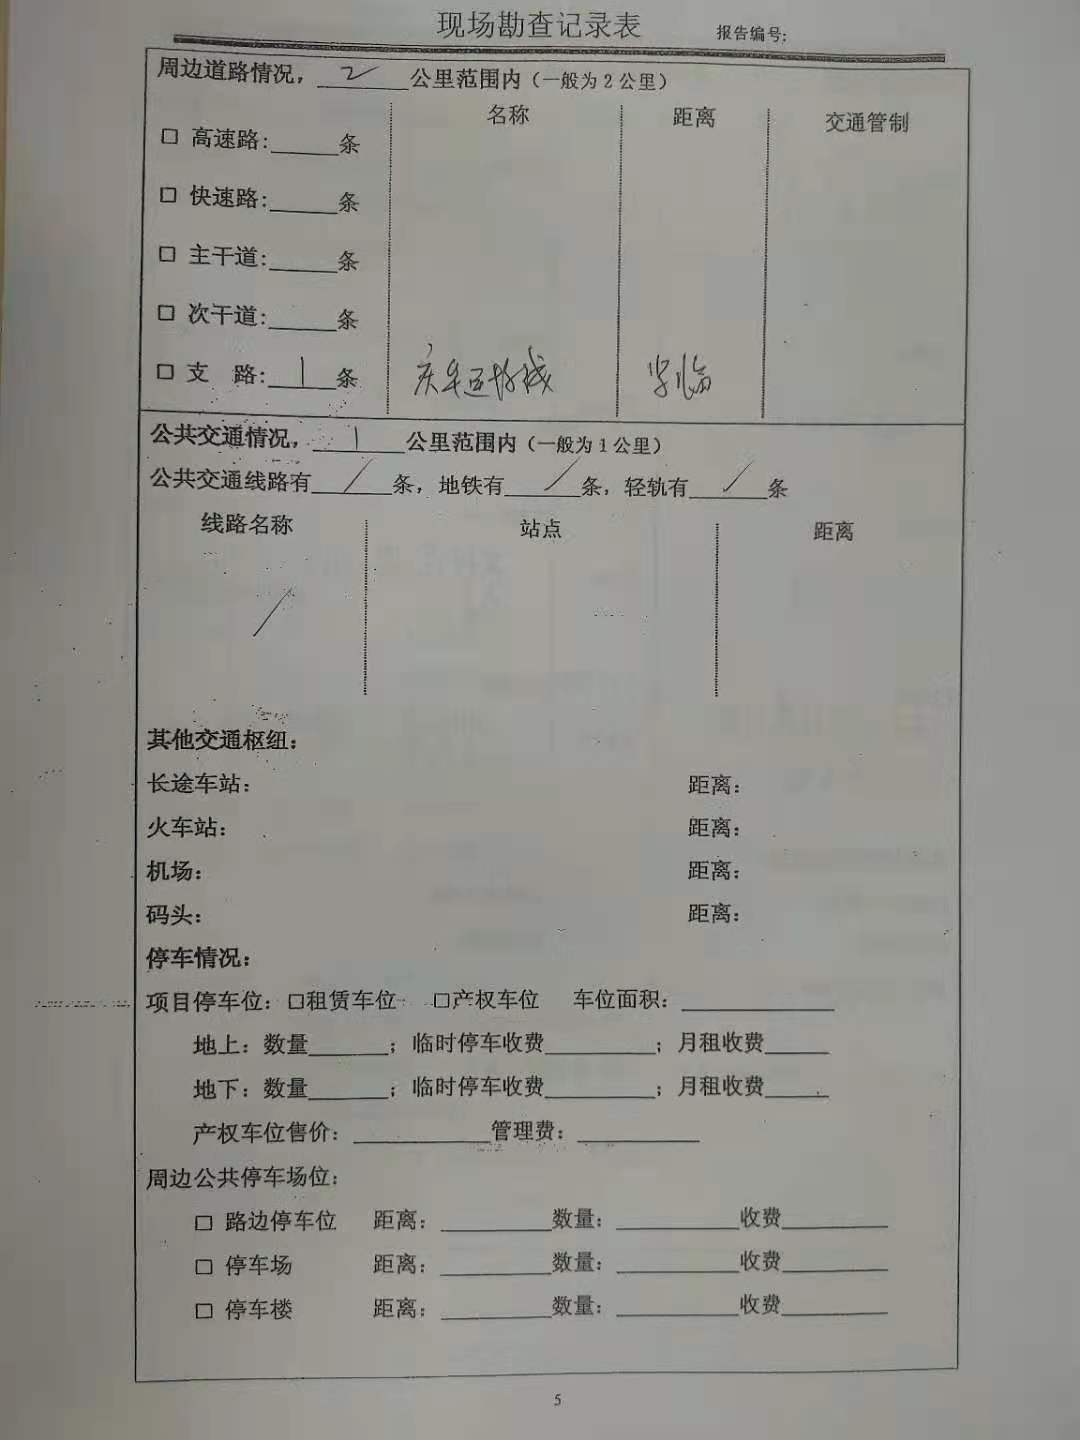 现场勘查记录表
报告编号:
周边道路情况，2公里范围内（一般为2公里）
名称 距离 交通管制
□ 高速路:______条
□ 快速路:______条
□ 主干道:______条
□ 次干道:______条
□ 支 路:1条
公共交通情况，1公里范围内（一般为1公里）
公共交通线路有/条，地铁有/条，轻轨有/条
线路名称 站点 距离
/
其他交通枢纽：
长途车站： 距离：
火车站： 距离：
机场： 距离：
码头： 距离：
停车情况：
项目停车位：□租赁车位 □产权车位 车位面积：____________
地上：数量______；临时停车收费________；月租收费_____
地下：数量______；临时停车收费________；月租收费_____
产权车位售价：__________管理费：_________
周边公共停车场位：
□ 路边停车位 距离：________数量：_________收费________
□ 停车场 距离：________数量：_________收费________
□ 停车楼 距离：________数量：_________收费________
5